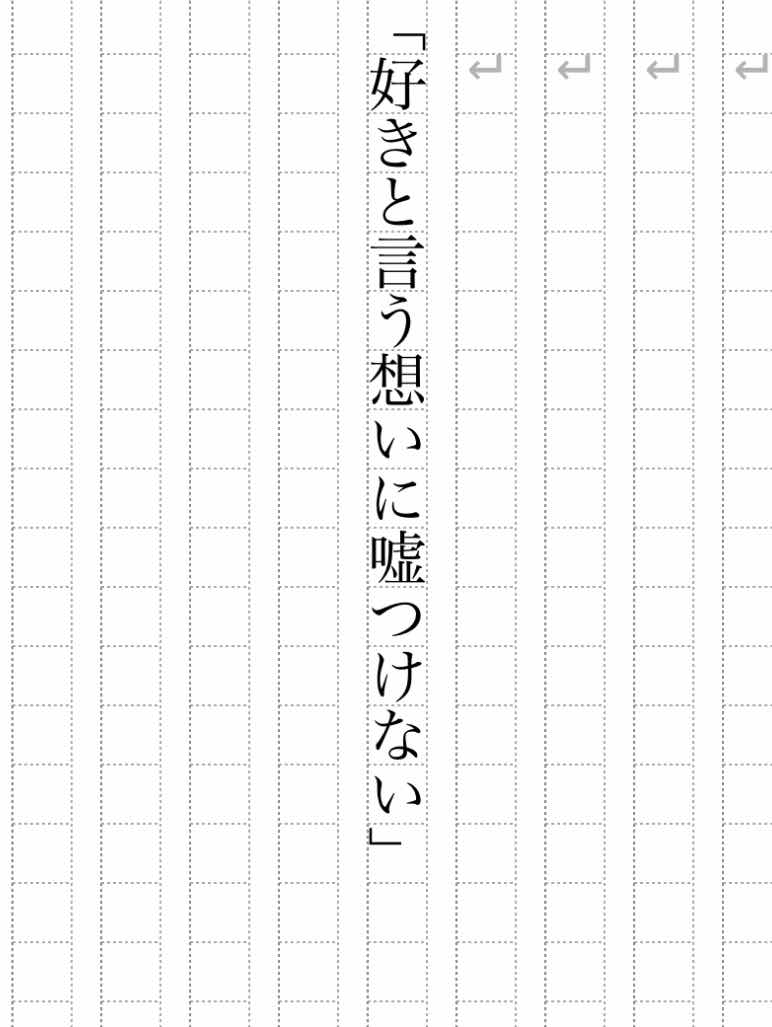 「好きと言う想いに嘘つけない」